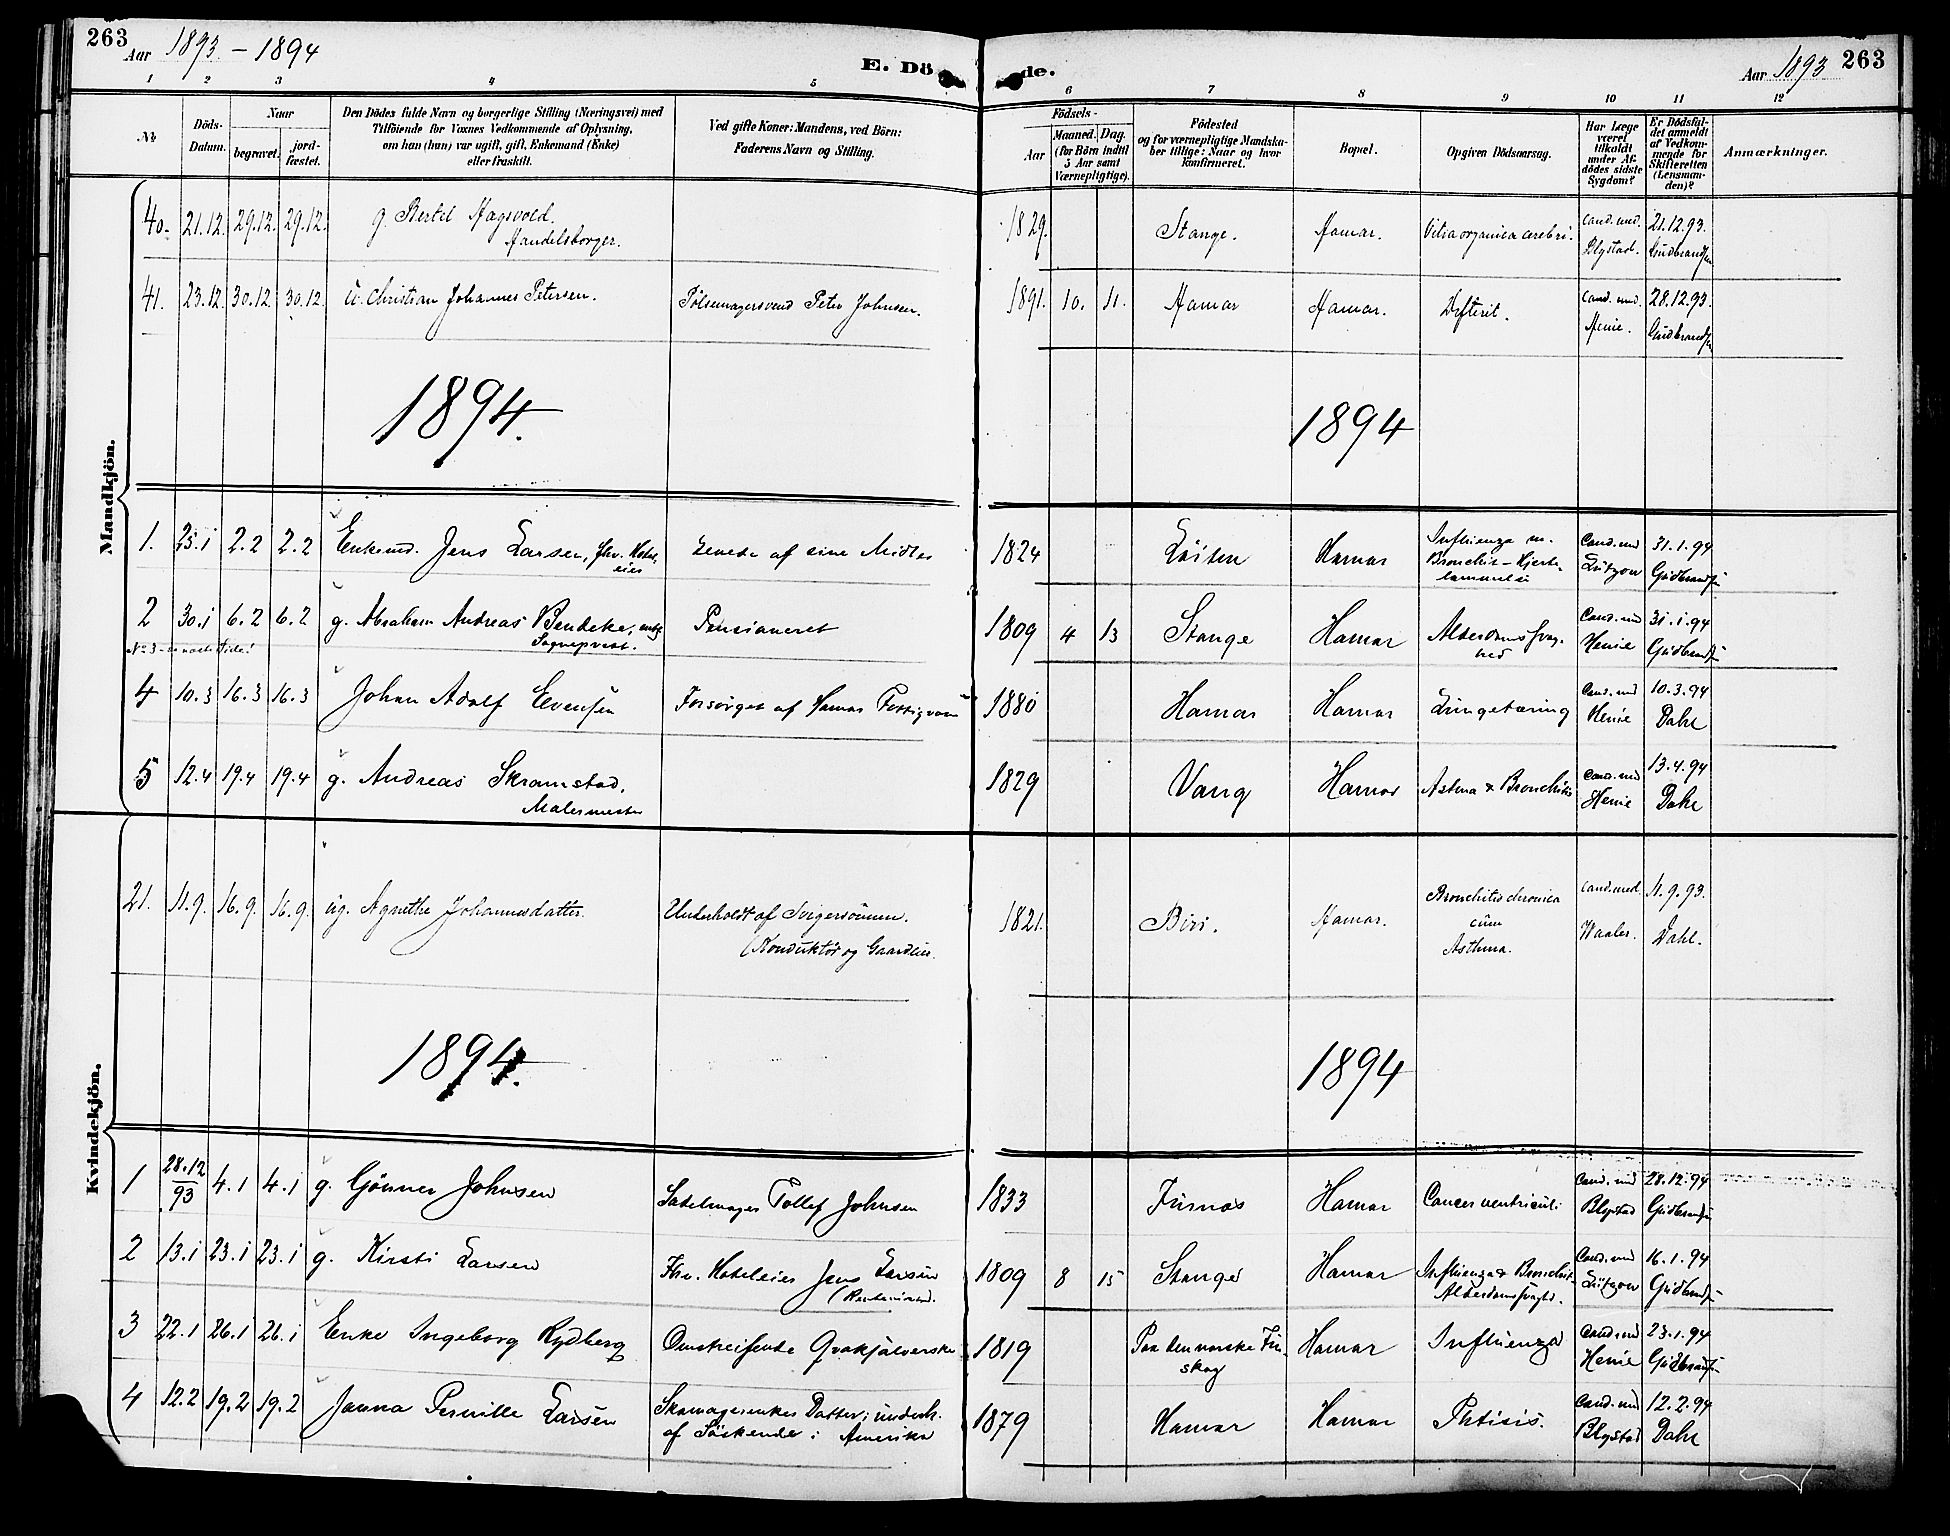 263
Aar 1893 – 1894
E. Dö
de.
Aar 1893
263
1 2 3 4 5 6 7 8 9 10 11 12
№
Döds-Datum.
Naar
begravet.
jord-fæstet.
Den Dödes fulde Navn og borgerlige Stilling (Næringsvei) med
Tilföiende for Voxnes Vedkommende af Oplysning,
om han (hun) var ugift, gift, Enkemand (Enke)
eller fraskilt.
Ved gifte Koner: Mandens, ved Börn:
Faderens Navn og Stilling.
Födsels-
Aar
Maaned. Dag.
(for Börn indtil
5 Aar samt
Værnepligtige).
Födested
og for værnepligtige Mandska-
ber tillige: Naar og hvor
konfirmeret.
Bopæl.
Opgiven Dödsaarsag.
Har Læge
været
tilkaldt
under Af-
dödes sidste
Sygdom?
Er Dödsfal-
det anmeldt
af Vedkom-
mende for
Skifteretten
(Lensman-
den)?
Anmærkninger.
Mandkjön.
40. 21.12. 29.12. 29.12. g. Bertel Hagsvold. 1829. Stange. Hamar. Vitia organica cerebri. Cand. med. 21.12.93.
Handelsborger. Blystad. Gudbrandsen
41. 23.12. 30.12. 30.12. u. Christian Johannes Petersen. Pölsemagersvend Peter Johnsen. 1891. 10. 11. Hamar Hamar. Difterit. Cand. med. 28.12.93.
Henie. Gudbrandsen
1894. 1894
1. 25.1 2.2 2.2 Enkemd. Jens Larsen, fhv. Hotel- Levede af sine Midler 1824 Löiten Hamar Influenza m. Cand. med 31.1.94
eier Bronchit – Hjerte- Lützow Gudbrandsen
lammelse
2 30.1 6.2 6.2 g. Abraham Andreas Bendeke, Pensioneret 1809 4 13 Stange Hamar Alderdomssvag- Cand. med 31.1.94
Sogneprest. hed Henie Gudbrandsen
4 10.3 16.3 16.3 Johan Adolf Evensen Forsörget af Hamar Fattigvæsen 1880 Hamar Hamar Lungetæring Cand. med 10.3.94
Henie Dahl
5 12.4 19.4 19.4 g. Andreas Skramstad. 1829 Vang Hamar Astma & Bronchitis Cand. med 13.4.94
Malermester Henie Dahl
Kvindekjön.
21. 11.9. 16.9. 16.9. ug. Agnethe Johannesdatter. Underholdt af Svigersönnen. 1821. Biri. Hamar. Bronchitis chronica Cand. med. 11.9.93.
(Konduktör og Gaardeier. cum Waaler. Dahl.
Asthma.
1894. 1894
1 28.12 4.1 4.1 g. Gönner Johnsen Sadelmager Tollef Johnsen 1833 Furnæs Hamar Cancer ventriculi Cand. med 28.12.94
93 Blystad Gudbrandsen
2 13.1 23.1 23.1 g. Kirsti Larsen Fhv. Hoteleier Jens Larsen 1809 8 15 Stange Hamar Influenza & Bronchit- Cand. med 16.1.94
(Rentenierer). Alderdomssvaghd. Lützow Gudbrandsen
3 22.1 26.1 26.1 Enke Ingeborg Rydberg Omstreifende Qvaksalverske 1819 Paa den norske Fin- Hamar Influenza Cand. med 23.1.94
skog Henie Gudbrandsen
4 12.2 19.2 19.2 Janna Pernille Larsen Skomagerenkes Datter; underh. 1879 Hamar Hamar Phtisis. Cand. med 12.2.94
af Söskende i Amerika Blystad Dahl